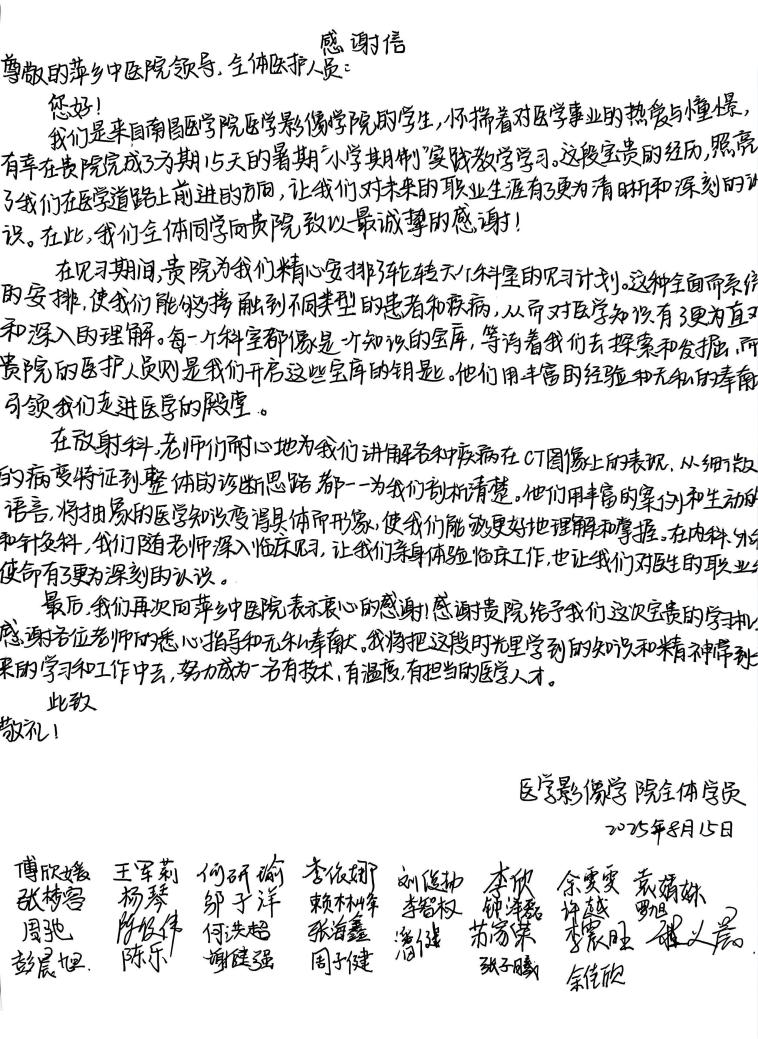 感谢信
尊敬的萍乡中医院领导、全体医护人员:
您好!
我们是来自南昌医学院医学影像学院的学生,怀揣着对医学事业的热爱与憧憬,
有幸在贵院完成了为期15天的暑期“小学期制”实践教学学习。这段宝贵的经历,照亮
了我们在医学道路上前进的方向,让我们对未来的职业生涯有了更为清晰和深刻的认
识。在此,我们全体同学向贵院致以最诚挚的感谢!
在见习期间,贵院为我们精心安排了轮转六个科室的见习计划。这种全面而系统
的安排,使我们能够接触到不同类型的患者和疾病,从而对医学知识有了更为直观
和深入的理解。每一个科室都像是一个知识的宝库,等待着我们去探索和发掘,而
贵院的医护人员则是我们开启这些宝库的钥匙。他们用丰富的经验和无私的奉献
引领我们走进医学的殿堂。
在放射科,老师们耐心地为我们讲解各种疾病在CT图像上的表现,从细微
的病变特征到整体的诊断思路都一一为我们剖析清楚。他们用丰富的案例和生动的
语言,将抽象的医学知识变得具体而形象,使我们能够更好地理解和掌握。在内科、外科
和针灸科,我们随老师深入临床见习,让我们亲身体验临床工作,也让我们对医生的职业
使命有了更为深刻的认识。
最后,我们再次向萍乡中医院表示衷心的感谢!感谢贵院给予我们这次宝贵的学习机
感谢各位老师的悉心指导和无私奉献。我将把这段时光里学到的知识和精神带到
来的学习和工作中去,努力成为一名有技术、有温度、有担当的医学人才。
此致
敬礼!
医学影像学院全体学员
2025年8月15日
傅欣媛 王军莉 何研瑜 李依娜 刘俊坤 李欣 余雯雯 袁婧姝
张梦容 杨琴 邹子洋 赖林峰 李智权 钟泽磊 许越 罗旭
周驰 何洪超 张海鑫 潘健 苏家荣 李震旺
彭晨旭 陈乐 谢健强 周子健 张子曦 余佳欣